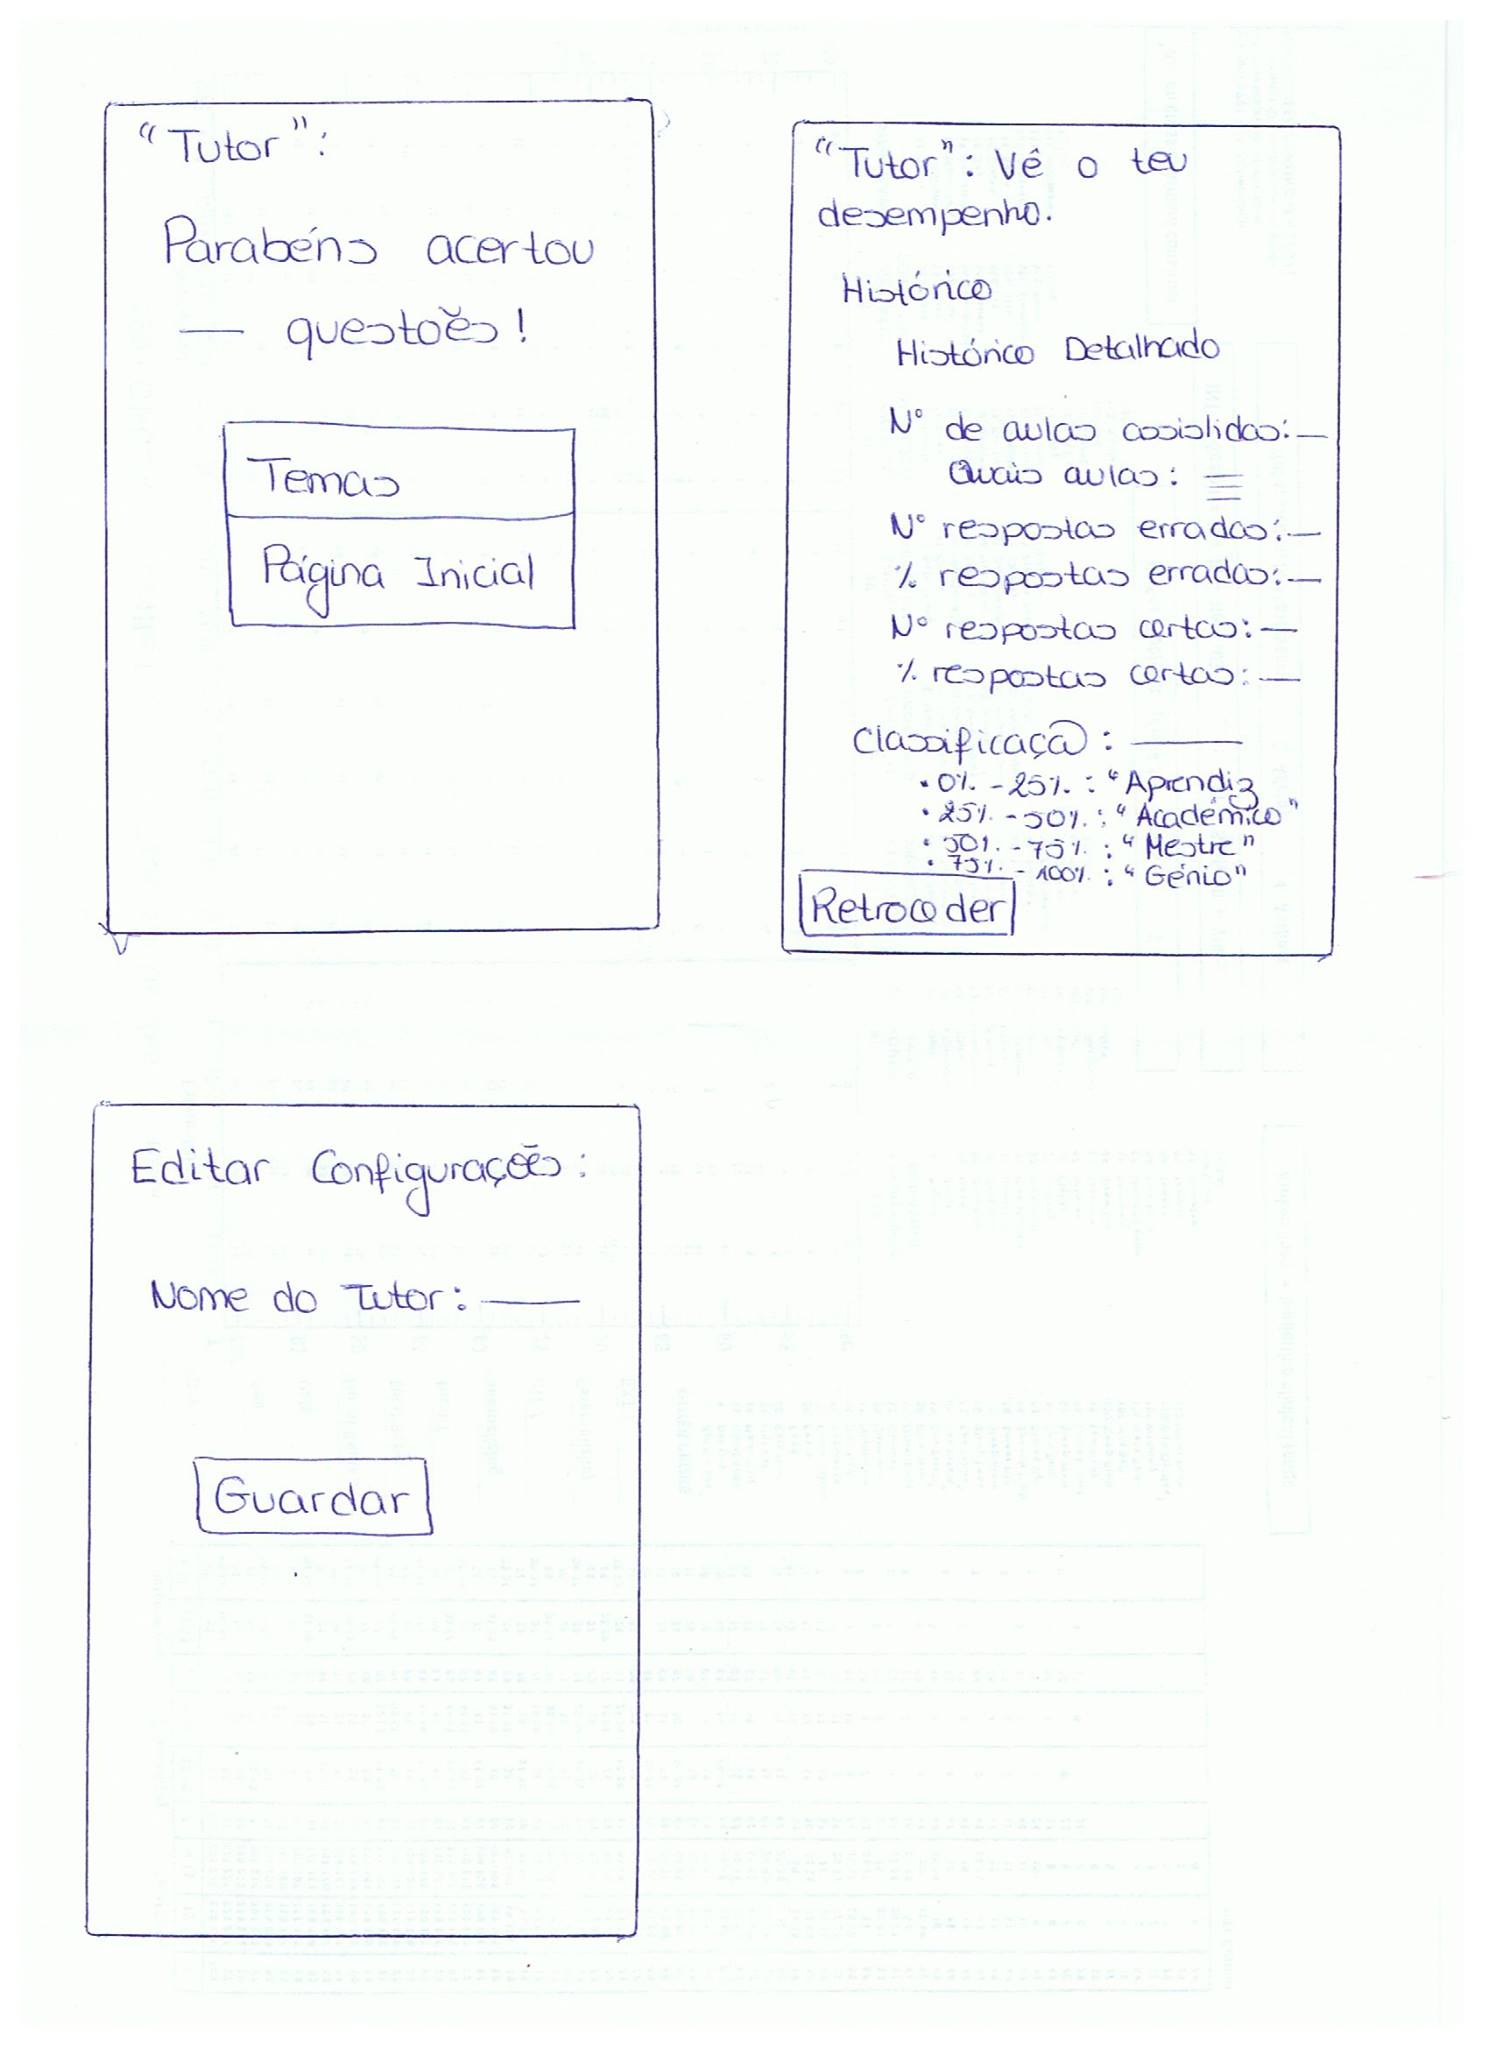 "Tutor":
Parabéns acertou
— questões!
Temas
Página Inicial
"Tutor": Vê o teu
desempenho.
Histórico
Histórico Detalhado
Nº de aulas assistidas: —
Quais aulas:
Nº respostas erradas: —
% respostas erradas: —
Nº respostas certas: —
% respostas certas: —
Classificação: ———
• 0% - 25% : "Aprendiz
• 25% - 50% : "Académico"
• 50% - 75% : "Mestre"
• 75% - 100% : "Génio"
Retroceder
Editar Configurações:
Nome do Tutor: ———
Guardar